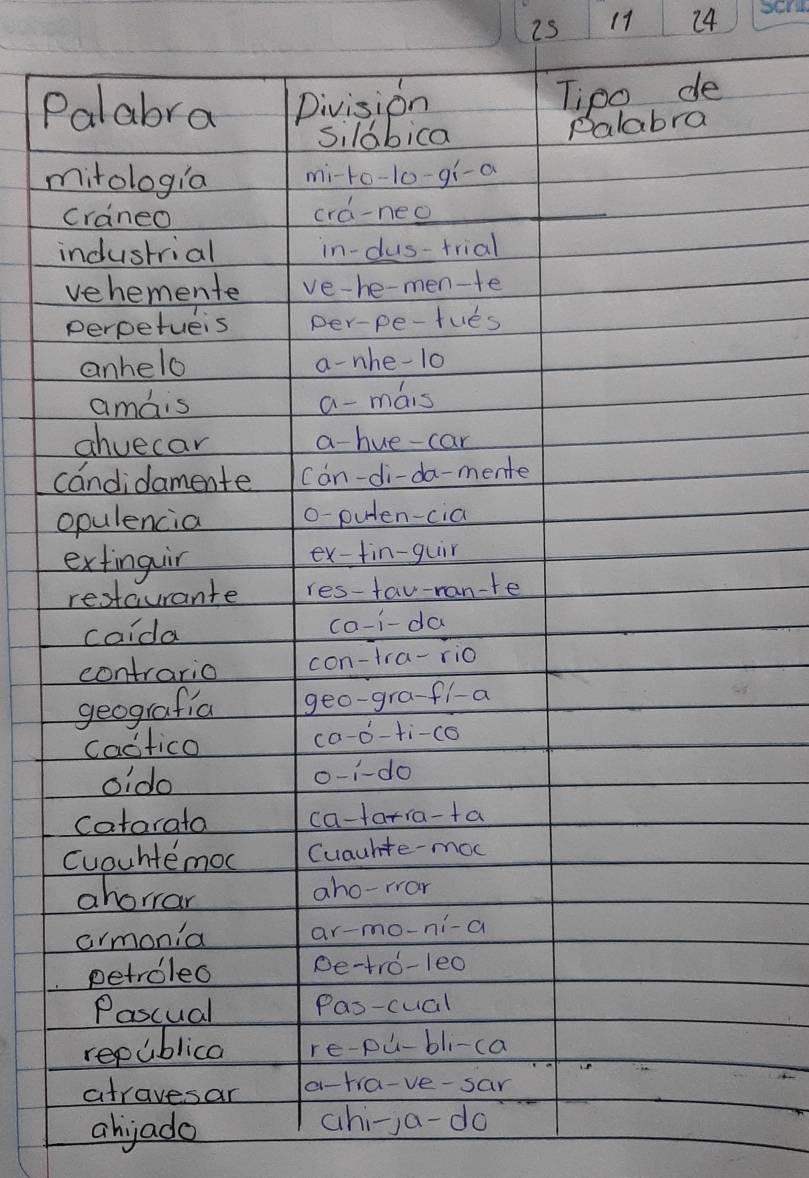 25 11 24 Scri
Palabra División silábica Tipo de palabra
mitología mi-to-lo-gí-a
cráneo crá-neo
industrial in-dus-trial
vehemente ve-he-men-te
perpetuéis per-pe-tués
anhelo a-nhe-lo
amáis a-máis
ahuecar a-hue-car
cándidamente cán-di-da-mente
opulencia o-pulen-cia
extinguir ex-tin-guir
restaurante res-tau-ran-te
caída ca-í-da
contrario con-tra-rio
geografía geo-gra-fí-a
caótico ca-ó-ti-co
oído o-í-do
catarata ca-tarra-ta
Cuauhtémoc Cuauhte-moc
ahorrar aho-rrar
armonía ar-mo-ní-a
petróleo pe-tró-leo
Pascual Pas-cual
república re-pú-bli-ca
atravesar a-tra-ve-sar
ahijado ahi-ja-do